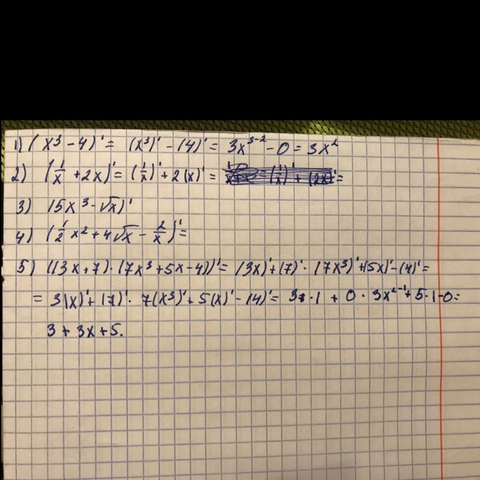 1) (x³ - 4)' = (x³)' - (4)' = 3x³⁻² - 0 = 3x²
2) (1/x + 2x)' = (1/x)' + 2(x)' =
3) (5x³ - √x)'
4) (1/2 x² + 4√x - 2/x)' =
5) ((3x+7)·(7x³+5x-4))' = (3x)'+(7)'·(7x³)'+(5x)'-(4)' =
= 3(x)'+(7)'·7(x³)'+5(x)'-(4)' = 3·1 + 0·3x²⁻¹+5·1-0=
3+3x+5.